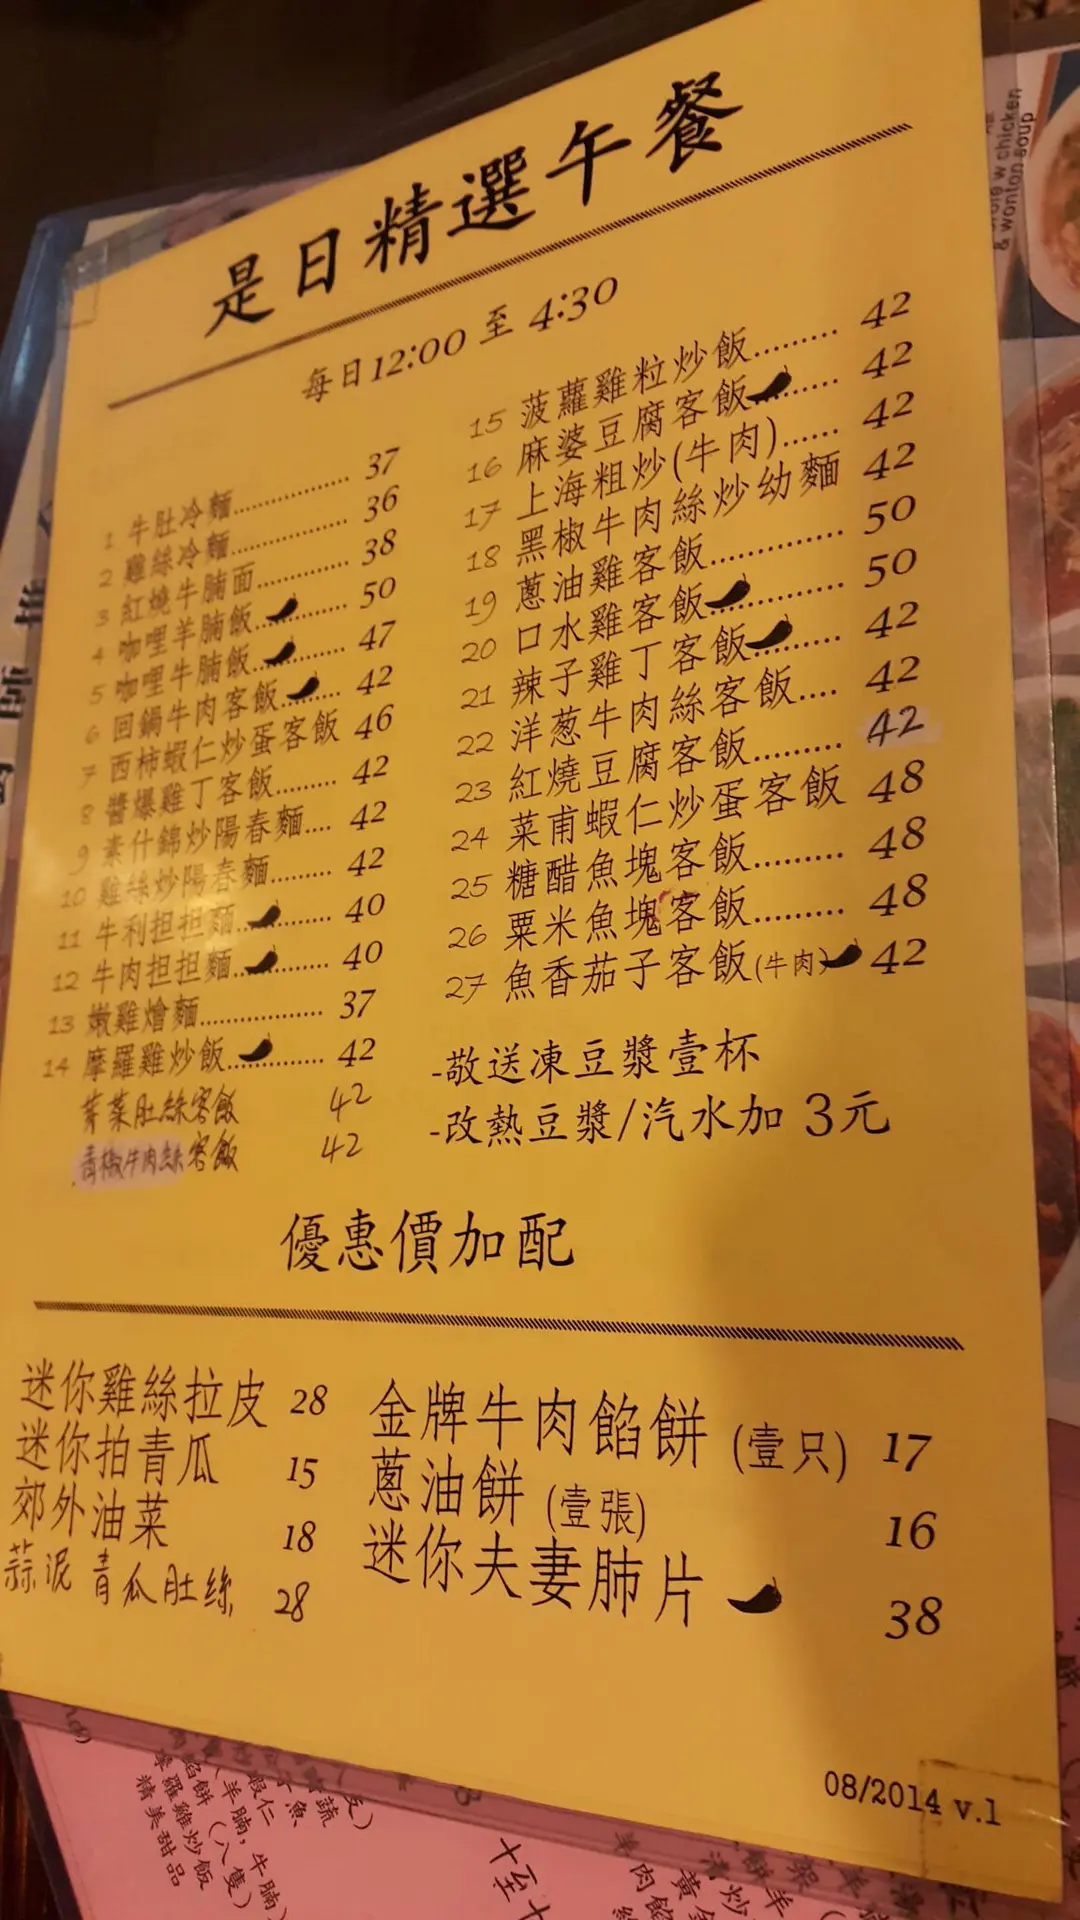 是日精選午餐
每日12:00 至 4:30
1 牛肚冷麵 37
2 雞絲冷麵 36
3 紅燒牛腩面 38
4 咖哩羊腩飯 50
5 咖哩牛腩飯 47
6 回鍋牛肉客飯 42
7 西柿蝦仁炒蛋客飯 46
8 醬爆雞丁客飯 42
9 素什錦炒陽春麵 42
10 雞絲炒陽春麵 42
11 牛利担担麵 40
12 牛肉担担麵 40
13 嫩雞燴麵 37
14 摩羅雞炒飯 42
菁菜肚絲客飯 42
青椒牛肉絲客飯 42
15 菠蘿雞粒炒飯 42
16 麻婆豆腐客飯 42
17 上海粗炒(牛肉) 42
18 黑椒牛肉絲炒幼麵 42
19 蔥油雞客飯 50
20 口水雞客飯 50
21 辣子雞丁客飯 42
22 洋葱牛肉絲客飯 42
23 紅燒豆腐客飯 42
24 菜甫蝦仁炒蛋客飯 48
25 糖醋魚塊客飯 48
26 粟米魚塊客飯 48
27 魚香茄子客飯(牛肉) 42
-敬送凍豆漿壹杯
-改熱豆漿/汽水加 3元
優惠價加配
迷你雞絲拉皮 28
迷你拍青瓜 15
郊外油菜 18
蒜泥青瓜肚絲 28
金牌牛肉餡餅 (壹只) 17
蔥油餅 (壹張) 16
迷你夫妻肺片 38
08/2014 v.1
w chicken
& wonton soup
羊腩,牛腩
餡餅 (八隻)
摩羅雞炒飯
精美甜品